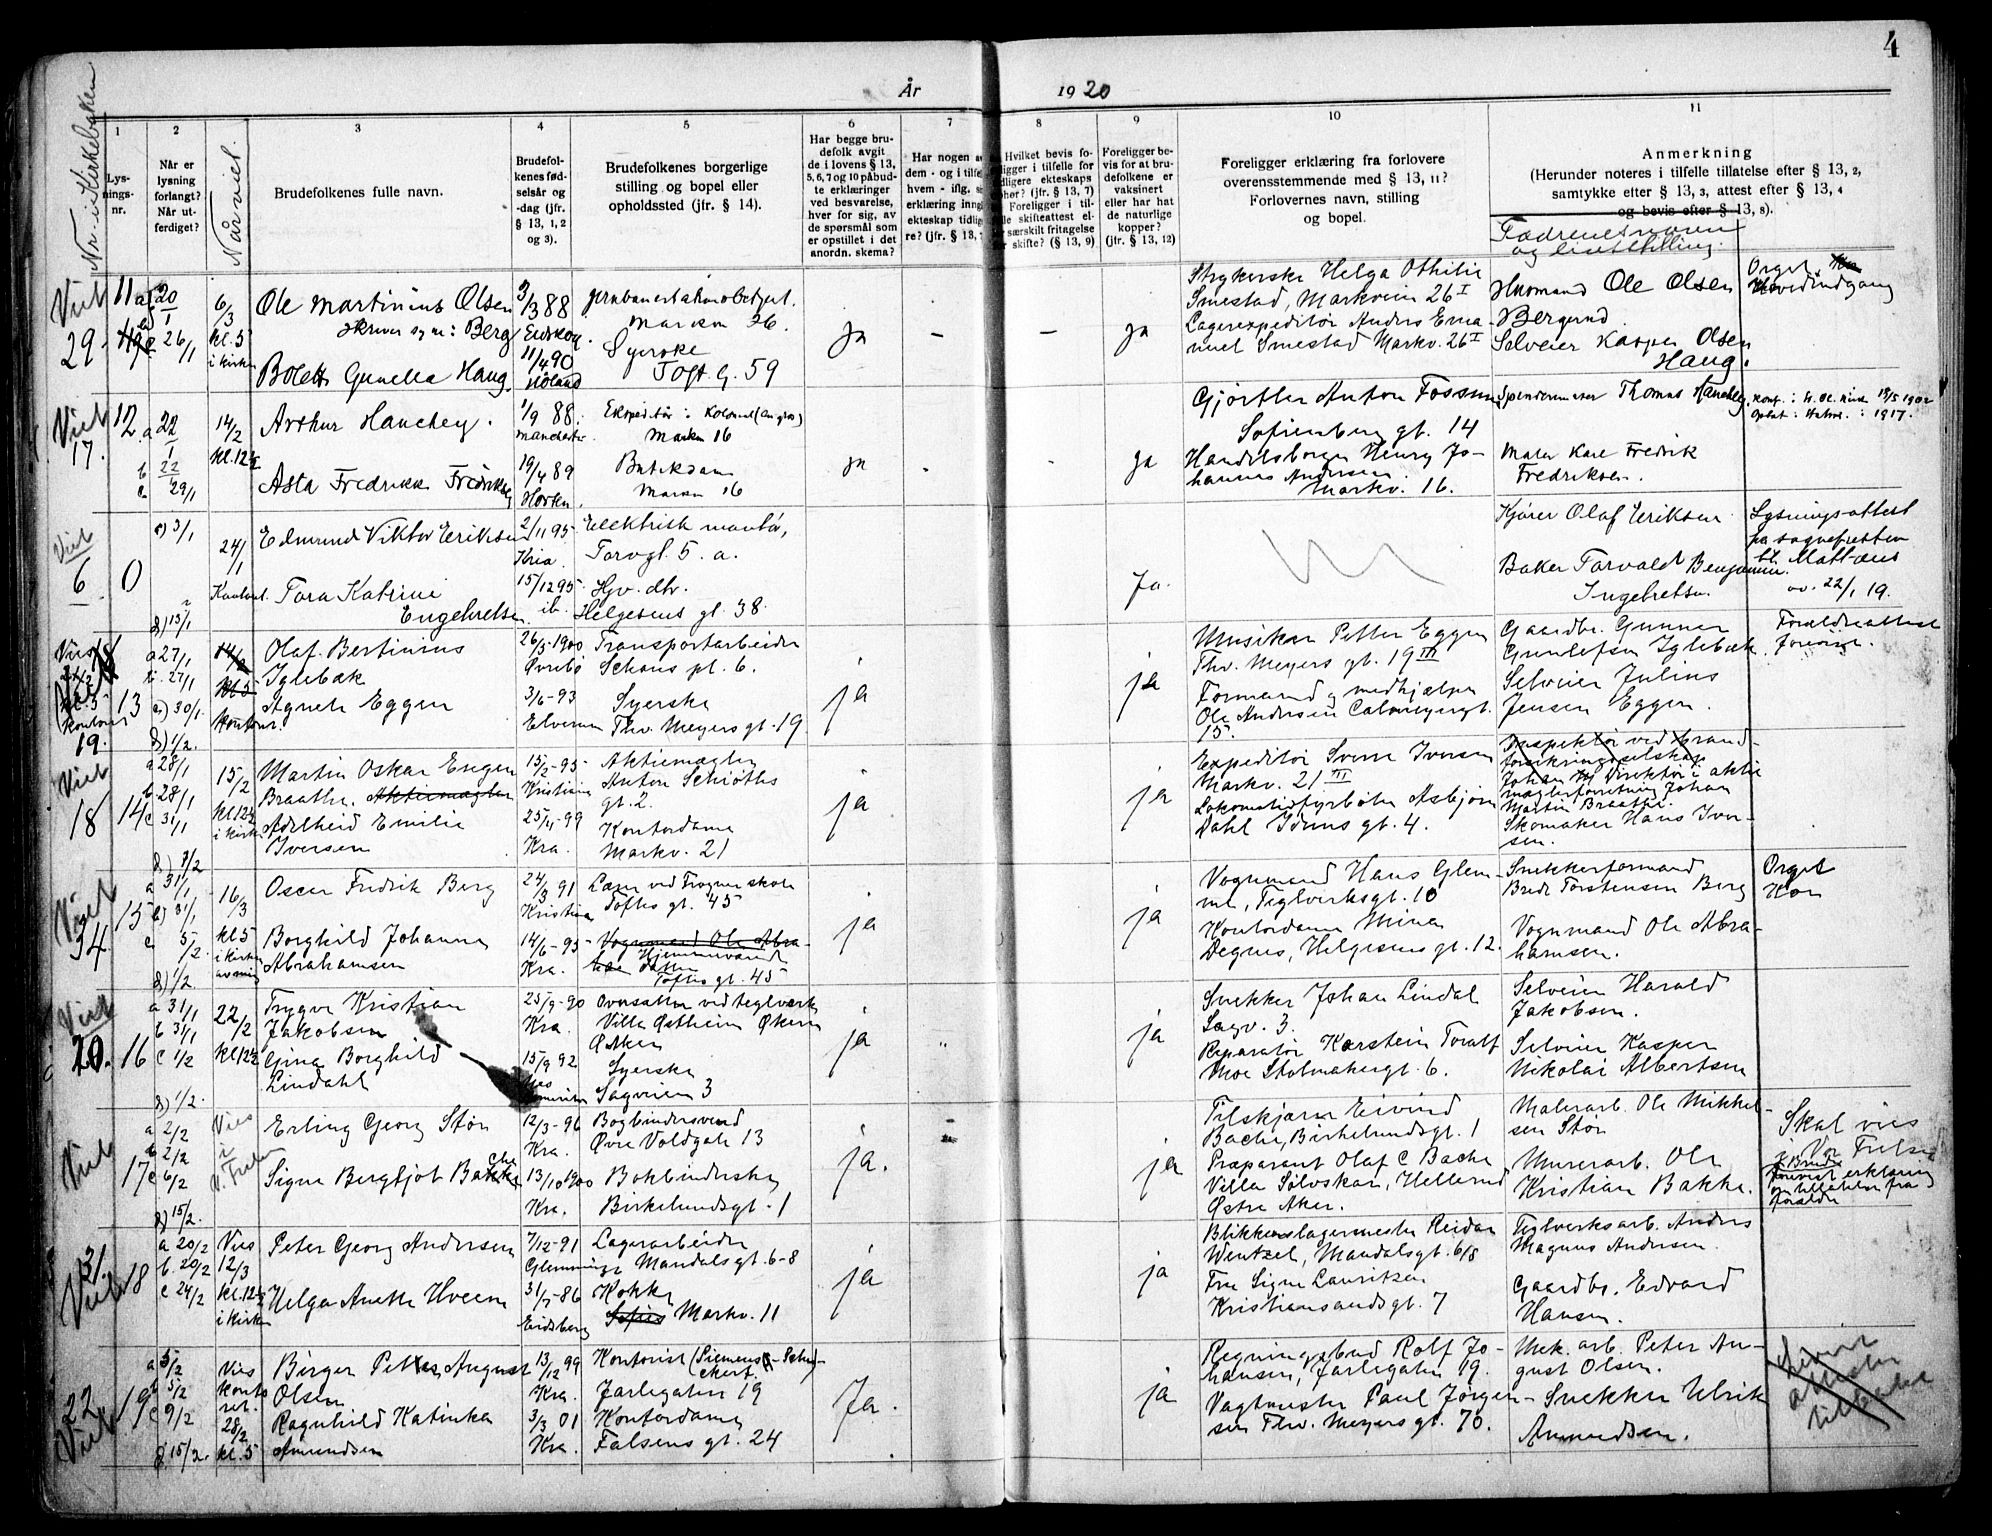 4
År 1920
Nr. i Kirkebøken
Når viet.
1
Lys-
nings-
nr.
2
Når er
lysning
forlangt?
Når ut-
ferdiget?
3
Brudefolkenes fulle navn.
4
Brudefol-
kenes fød-
selsår og
-dag (jfr.
§ 13, 1, 2
og 3).
5
Brudefolkenes borgerlige
stilling og bopel eller
opholdssted (jfr. § 14).
6
Har begge bru-
defolk avgit
de i lovens § 13,
5, 6, 7 og 10 påbud-
te erklæringer
ved besvarelse,
hver for sig, av
de spørsmål som
er opstillet i det
anordn. skema?
7
Har nogen a
dem - og i tilfe
hvem - iflg. s
erklæring inng
ekteskap tidlig
re? (jfr. § 13,
8
Hvilket bevis fo-
ligger i tilfelle for
dligere ekteskaps
her? (jfr. § 13, 7)
Foreligger i til-
le skifteattest el-
r særskilt fritagelse
r skifte? (§ 13, 9)
9
Foreligger be-
vis for at bru-
defolkene er
vaksinert
eller har hat
de naturlige
kopper?
(§ 13, 12)
10
Foreligger erklæring fra forlovere
overensstemmende med § 13, 11?
Forlovernes navn, stilling
og bopel.
11
Anmerkning
(Herunder noteres i tilfelle tillatelse efter § 13, 2,
samtykke efter § 13, 3, attest efter § 13, 4
og bevis efter § 13, 8).
Fædrenes navn
og livsstilling.
Viet 29
11
20/1
26/1
6/3
kl. 5
i kirken
Ole Martinius Olsen
skriver sig: Berg
Bolette Gunella Haug.
3/3 88
Eidskog
11/4 90
Høland
Marken 26.
Syerske
Toft. g. 59
ja
–
–
ja
Strykerske Helga Othilie
Smestad, Markveien 26 I
Lagerexpeditør Anders Ema-
nuel Smestad Markv. 26 I
Husmand Ole Olsen
Bergerud.
Selveier Kasper Olsen
Haug.
Orgel.
Hovedindgang
Viet 17.
12
a 22/1
b 22/1
c 29/1
14/2
kl. 12½
Arthur Hanchey.
Asta Fredrikke Fredriksen
1/9 88.
Manchester.
19/4 89
Horten.
Ekspeditør: Kolonial (en gros)
Marken 16
Butikdame
Marken 16
ja
ja
Gjørtler Anton Fossum
Sofienberg gt. 14
Handelsborger Henry Jo-
hannes Andersen
Markv. 16.
Thomas Hanchey.
Maler Kare Fredrik
Fredriksen.
1917.
Viet 6
0
a) 3/1
d) 13/1
24/1
Kontoret.
Edmund Viktor Eriksen
Tora Katrine
Engebretsen
2/11 95
Kria
15/12 95
ib.
Elektrisk montør,
Torvgt. 5. a.
Hjv. dtr.
Helgesens gt. 38.
Ja.
Kjører Olaf Eriksen
Baker Torvald Benjamin
Ingebretsen.
Lysningsattest
fra sognepresten
til Matteus
av 22/1 19.
Viet
19.
13
a 27/1
b. 27/1
c) 30/1.
d) 1/2.
14/2
kl 5
kontoret.
Olaf Bertinius
Iglebæk
Agnete Eggen
26/3-1900
Øvrebø
3/6-93
Elverum
Transportarbeider
Schous pl. 6.
Syerske
Thv. Meyers gt. 19
ja
ja
Musiker Petter Eggen
Thv. Meyers gt. 19 III
Formand og medhjælper
Ole Andersen Calmeyergt.
15.
Gaardbr. Gunner
Gunlefsen Iglebæk
Selveier Julius
Jensen Eggen.
Forældreattest
forevist.
Viet 18
14
a 28/1
b 28/1
c 31/1
d) 7/2
15/2
kl 12½
i kirken
Martin Oskar Eugen
Braathe. Aktiemægler
Adelheid Emilie
Iversen
15/2-95
Kristiania
25/4-99
Kra.
Aktiemægler
Anton Schiøths
gt. 2.
Kontordame
Markv. 21
ja
ja
Expeditør Sverre Iversen
Markv. 21 III
Lokomotivfyrbøter Asbjørn
Dahl Iduns gt. 4.
Inspektør ved brand-
forsikringsselskap
Johan Direktør i aktie
mæglerforretning Johan
Martin Braathe.
Skomaker Hans Iver-
sen.
Viet 34
15
a 31/1
b) 31/1
c 5/2
d) 1/2.
16/3
kl 5
i kirken
Oscar Fredrik Berg
Borghild Johanne
Abrahamsen
24/3 91
Kristiania
14/6-95
Kra.
Lærer ved Frogner skole
Toftes gt. 45
Vognmand Ole Abra-
Hjemmeværende
datter
Toftes gt. 45
ja
ja
Vognmand Hans Glem-
me, Teglverksgt. 10
Kontordame Mina
Degnes, Helgesens gt. 12.
Snekkerformand
Brede Torstensen Berg
Vognmand Ole Abra-
hamsen.
Orgel
Kor
Viet
20.
16
a 31/1
b 31/1
c 1/2
d) 1/2.
22/2
kl 12½
Trygve Kristian
Jakobsen
Gina Borghild
Lindahl
25/9-90
Kra.
15/9 92
Oversætter ved teglverk
Villa Østheim Økern
Ø Aker
Syerske
Sagveien 3
ja
ja
Snekker Johan Lindal
Sagv. 3.
Reparatør Karstein Toralf
Moe Stolmakergt. 6.
Selveier Harald
Jakobsen.
Selveier Kasper
Nikolai Albertsen
Viet
17
a 2/2
b 2/2
c 6/2
d) 15/2.
Vies
i
V. Frelser
Erling Georg Støn
Signe Bergljot Bakke
12/3-96
Kra.
13/10 1900
Kra.
Bogbindersvend
Øvre Voldgate 13
Bokbinderske
Birkelundsgt. 1
ja.
ja
Tilskjærer Eivind
Bache, Birkelundsgt. 1
Præparant Olaf C Bache
Villa Solvskar, Hellerud
Østre Aker.
Malerarb. Ole Mikkel-
sen Støn
Murerarb. Ole
Kristian Bakke.
Skal vies
i Vor Frelser
Bruden
forevist erklæring
om tillatelse fra
forældre
31.
Viet
18
a 20/2
b. 20/2
c 24/2
Vies
12/3
kl. 12½
i kirken
Peter Georg Andersen
Helga Anette Hveem
7/12-91
Glemminge
31/7-86
Eidsberg
Lagerarbeider
Mandalsgt. 6-8
Kokke
Sofies Markv. 11
ja
ja
Blikkenslagermester Reidar
Wentzel, Mandalsgt. 6/8
Fru Signe Lauritzen
Kristiansandsgt. 7
Teglverksarb. Anders
Magnus Andersen.
Gaardbr. Edvard
Hansen.
22
Viet
19
a 5/2
b 5/2
c 9/2
d. 15/2.
Vies
konto
ret.
28/2
kl. 5
Birger Petter August
Olsen
Ragnhild Katinka
Amundsen
13/12 99
Kra.
3/3 01
Kra.
Kontorist (Siemens-Schu-
ckert)
Jarlegaten 19
Kontordame
Falsens gt. 24
Ja.
ja
Regningsbud Rolf Jo-
hansen, Jarlegaten 19.
Vagtmester Paul Jørgen-
sen Thv. Meyers gt. 70.
Mek. arb. Peter Au-
gust Olsen.
Snekker Ulrik
Amundsen.